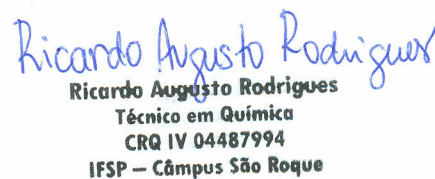 Ricardo Augusto Rodrigues
Ricardo Augusto Rodrigues
Técnico em Química
CRQ IV 04487994
IFSP – Câmpus São Roque